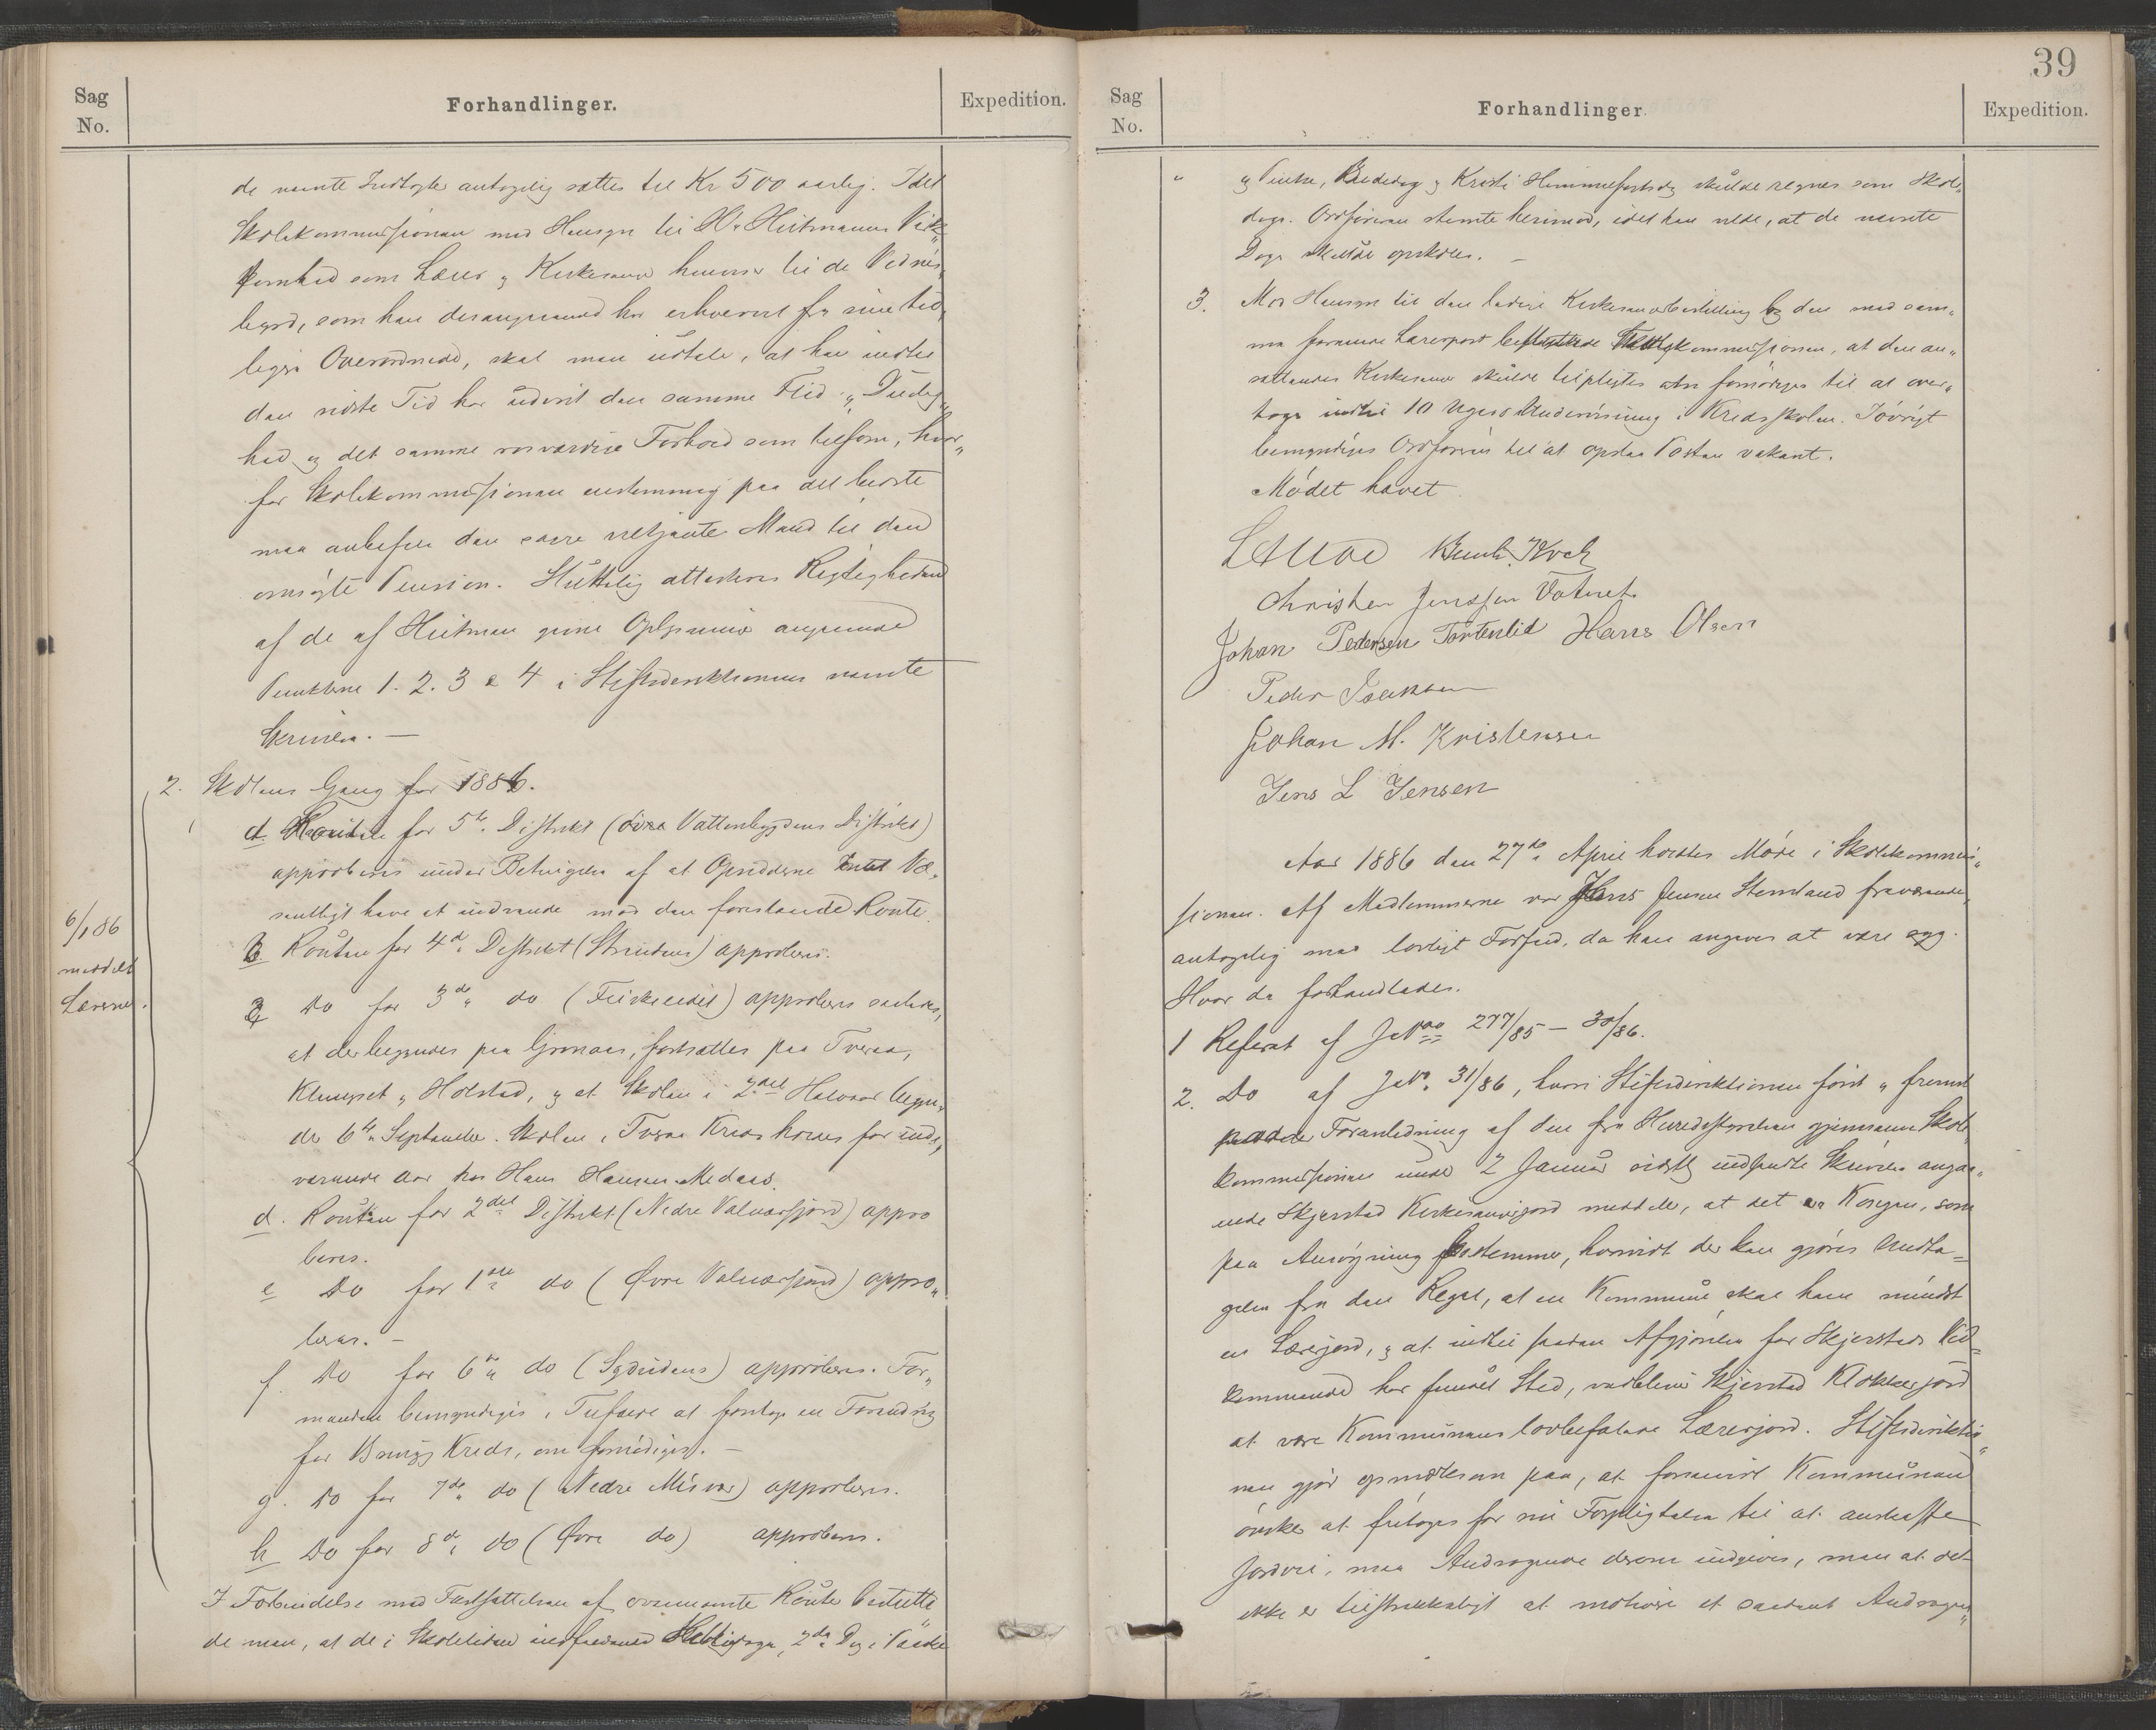 Sag
No.
Forhandlinger.
Expedition.
de nævnte Indtægter antagelig sættes til Kr 500 aarlig. Idet
Skolekommissionen med Hensyn til Hr Heitmanns Virk„
somhed som Lærer og Kirkesanger henviser til de Vidnes„
byrd, som han desangaaende har erhvervet fra sine tid„
ligere Overordnede, skal man udtale, at han indtil
den sidste Tid har udvist den samme Flid og Dueligs
hed og det samme rosværdige Forhold som tilforn, hvor„
for Skolekommissionen enstemmig paa det bedste
maa anbefale den saare veltjente Mand til den
ansøgte Pension. Sluttelig attesteres Rigtigheden
af de af Heitman givne Oplysninger angaaende
Punkterne 1. 2. 3 & 4 i Stiftsdirektionens nævnte
Skrivelse. —
2. Skolens Gang for 1886.
a. Routen for 5te Distrikt (øvre Vattenbygdens Distrikt)
approberes under Betingelse af at Opsidderne Intet Væ„
sentligt have at indvende mod den foreslaaede Route.
6/1 86
meddelt
Lærerne.
b. Routen for 4de Distrikt (Strandens) approberes.
c. Do for 3die do ( ) approberes saaledes,
at der begyndes paa , fortsættes paa Tveraa,
Klungset og Holstad, og at Skolen i 2det Halvaar begyn„
der 6te September. Skolen i Tveraa Kreds holdes for inde„
værende Aar hos Hans Hansen Medaas.
d. Routen for 2det Distrikt (Nedre Valnæsfjord) appro
beres.
e Do for 1ste do (Øvre Valnæsfjord) appro„
beres. —
f. Do for 6te do (Sydsidens) approberes. For„
manden bemyndiges i Tilfælde at foretage en Forandring
for Kreds, om fornødiges. —
g. Do for 7de do (Nedre Misvær) approberes.
h Do for 8de do (Øvre do) approberes.
I Forbindelse med Fastsættelsen af ovennævnte Router besluttede
de man, at de i Skoletiden indfaldende Helligdage, 2den Dag i Paaske
39
Sag
No.
Forhandlinger.
Expedition.
„ og Pintse, Bededag og Kristi Himmelfartsdag skulde regnes som Skole„
dage. Ordføreren stemte herimod, idet han vilde, at de nævnte
Dage skulde opskoles. —
3. Med Hensyn til den ledige Kirkesangerbestilling og den med sam„
me forenede Lærerpost besluttede Skolekommissionen, at den an„
sættendes Kirkesanger skulde tilpligtes om fornødiges til at over„
tage indtil 10 Ugers Undervisning i Kredsskolen. Iøvrigt
bemyndiges Ordføreren til at opslaa Posten vakant.
Mødet hævet.
Bernh. Koch
Christen Jenssen Vatnet
Johan Pedersen Tortenlid Hans Olsen
Peder Isaksen
Johan M. Kristensen
Jens L Jensen
Aar 1886 den 27de April holdtes Møde i Skolekommis„
sionen. Af Medlemmerne var Hans Jensen Stemland fraværende,
antagelig med lovligt Forfald, da han angives at være syg.
Hvor da forhandledes.
1 Referat af JNo 277/85 — 30/86.
2. Do af JNo 31/86, hvori Stiftsdirektionen først og fremst
paa Foranledning af den fra Herredsstyrelsen gjennem Skole
kommissionen under 2 Januar sidstl indsendte Skrivelse angaa„
ende Skjerstad Kirkesangergaard meddeler, at det er Kongen, som
paa Ansøgning bestemmer, hvorvidt der kan gjøres Undta=
gelse fra den Regel, at en Kommune skal have mindst
en Lærerjord, og at indtil saadan Afgjørelse for Skjerstads Ved=
kommende har fundet Sted, vedbliver Skjerstad Klokkerjord
at være Kommunens lovbefalede Lærerjord. Stiftsdirektio„
nen gjør opmærksom paa, at forsaavidt Kommunen
ønsker at fritages for sin Forpligtelse til at anskaffe
Jordvei, maa Andragende derom indgives, men at det
ikke er tilstrækkeligt at motivere et saadant Andragen„